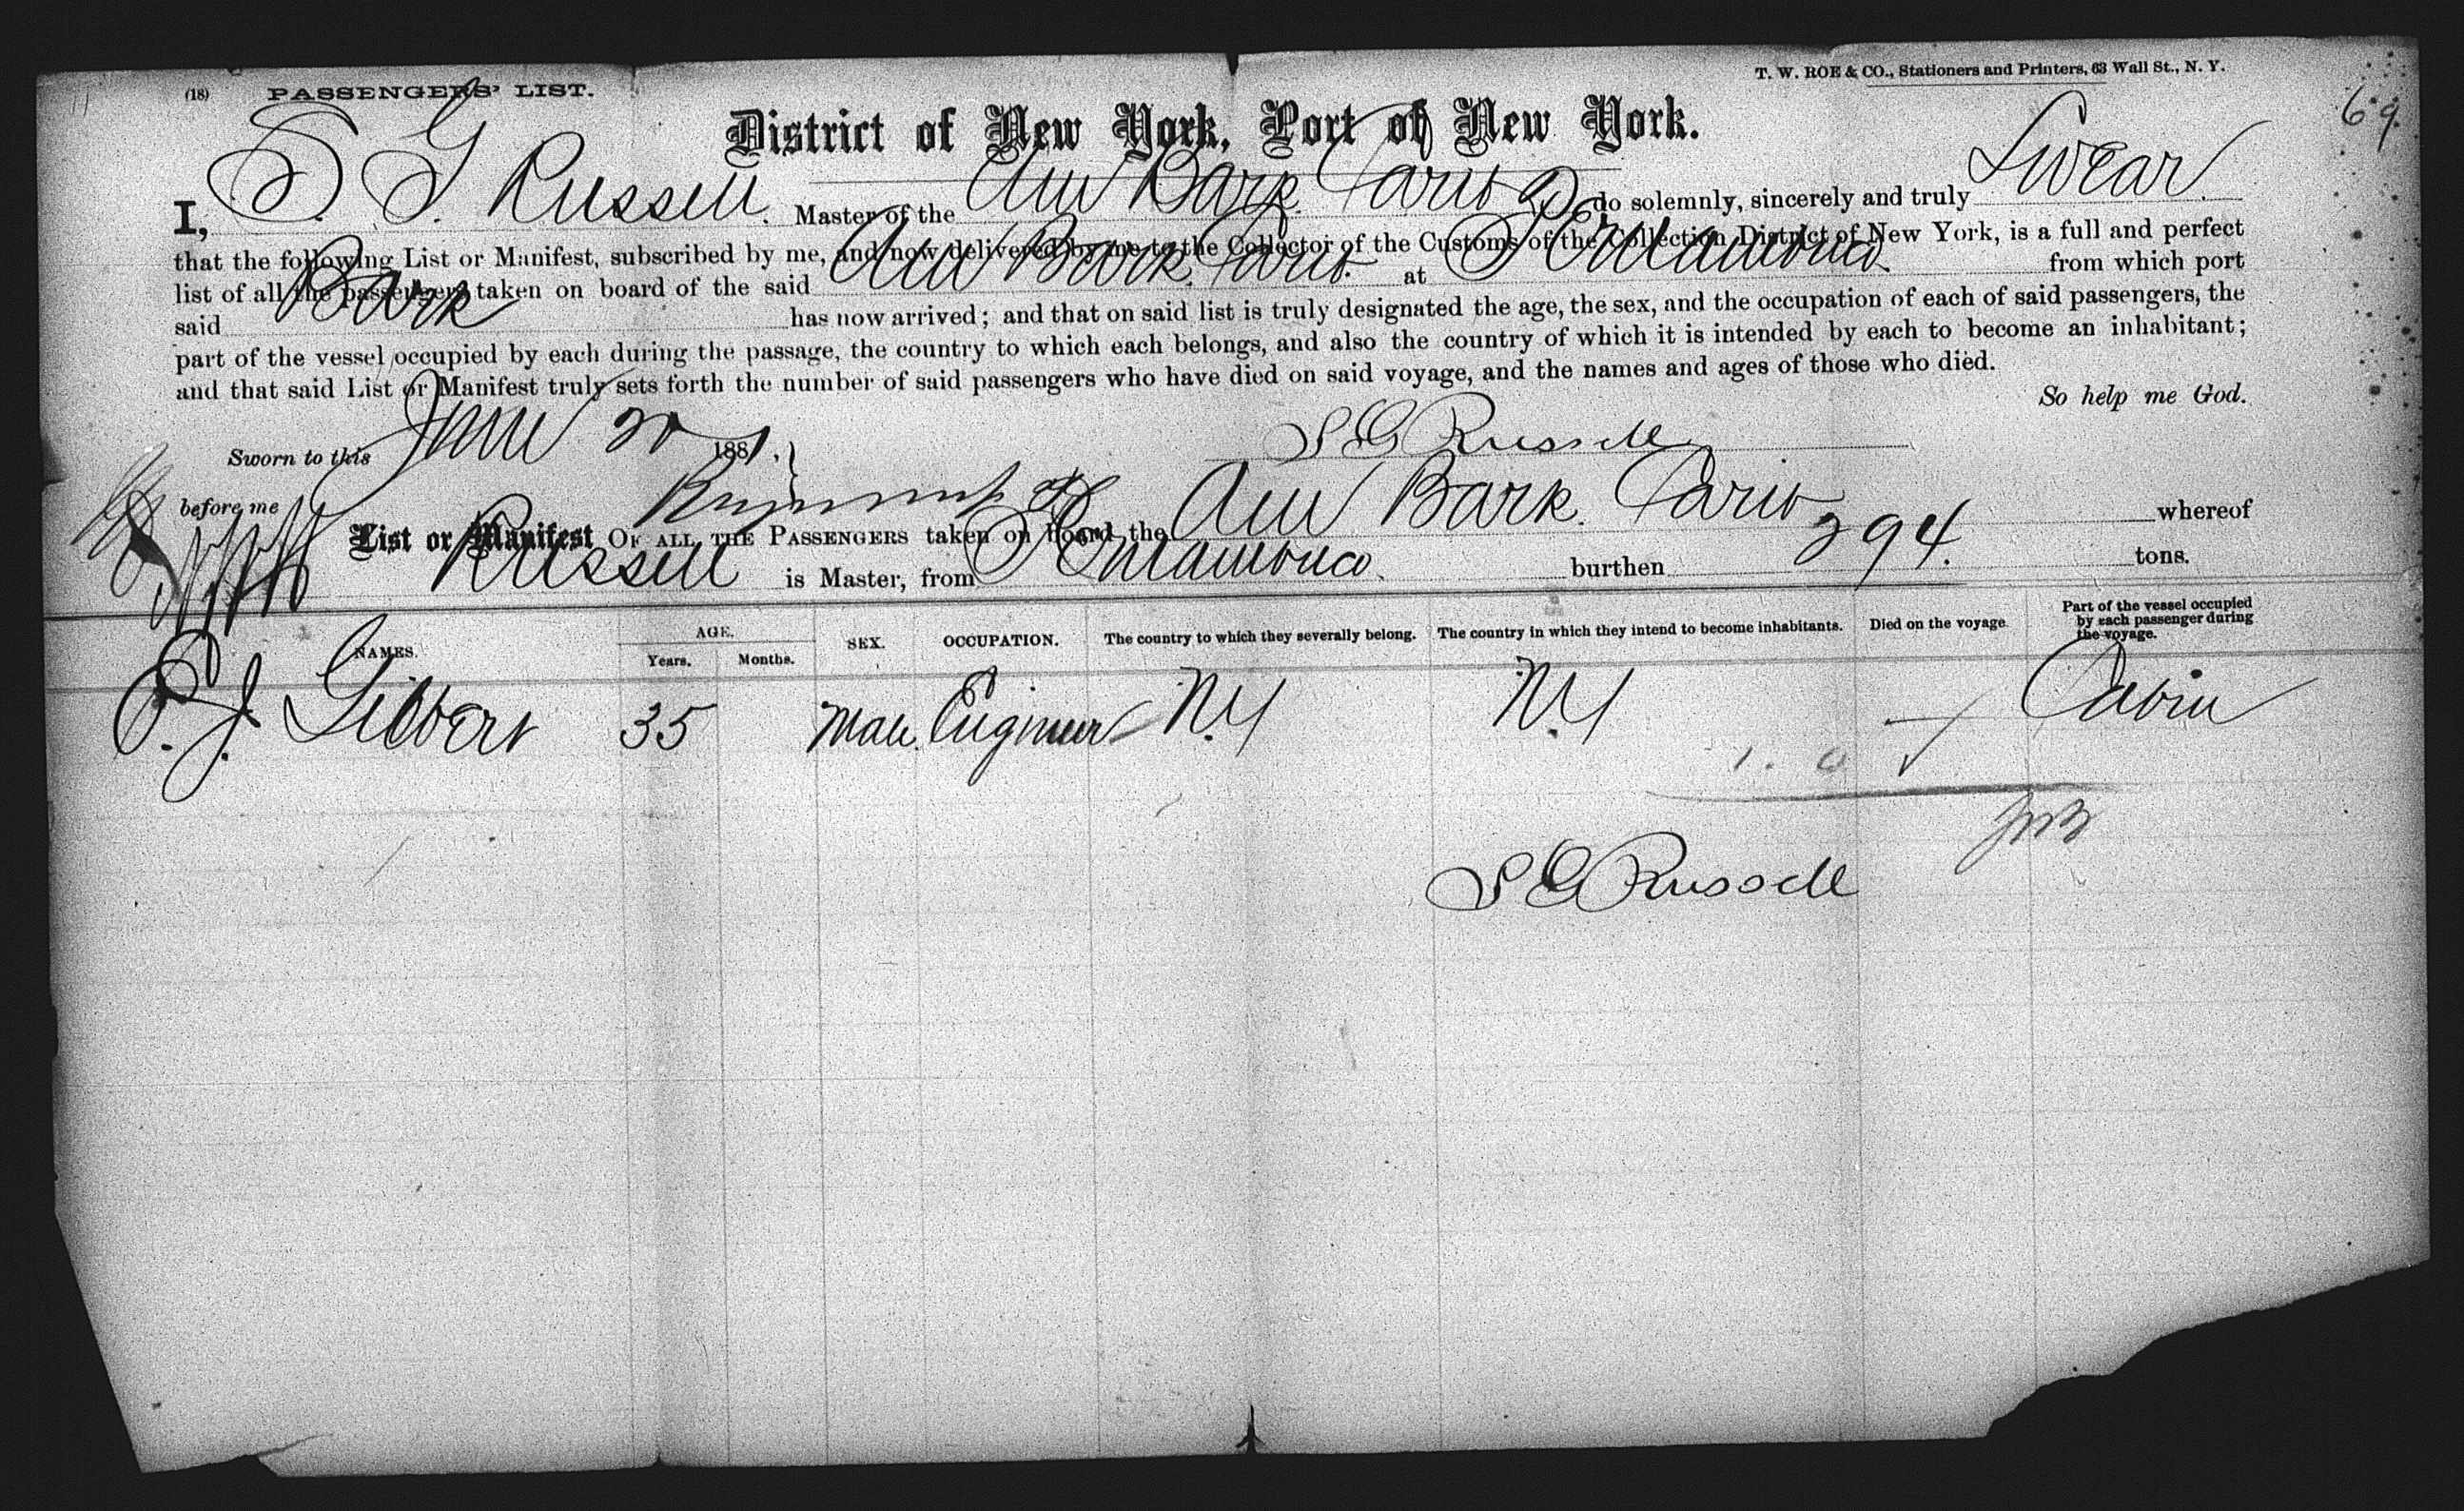 (18) PASSENGERS' LIST.
T. W. ROE & CO., Stationers and Printers, 63 Wall St., N. Y.
69
District of New York, Port of New York.
I, S. G. Russell Master of the Am Bark do solemnly, sincerely and truly Swear
that the following List or Manifest, subscribed by me, and now delivered by me to the Collector of the Customs of the Collection District of New York, is a full and perfect
list of all the passengers taken on board of the said Am Bark at Pernambuco from which port
said Bark has now arrived; and that on said list is truly designated the age, the sex, and the occupation of each of said passengers, the
part of the vessel occupied by each during the passage, the country to which each belongs, and also the country of which it is intended by each to become an inhabitant;
and that said List or Manifest truly sets forth the number of said passengers who have died on said voyage, and the names and ages of those who died.
So help me God.
Sworn to this June 20 1881.
S G Russell
before me
List or Manifest OF ALL THE PASSENGERS taken on board the Am Bark whereof
Russell is Master, from Pernambuco. burthen 394. tons.
NAMES. AGE. Years. Months. SEX. OCCUPATION. The country to which they severally belong. The country in which they intend to become inhabitants. Died on the voyage. Part of the vessel occupied by each passenger during the voyage.
P. J. Gilbert 35 Male. Engineer N.Y N.Y — Cabin
1. 0
S G Russell